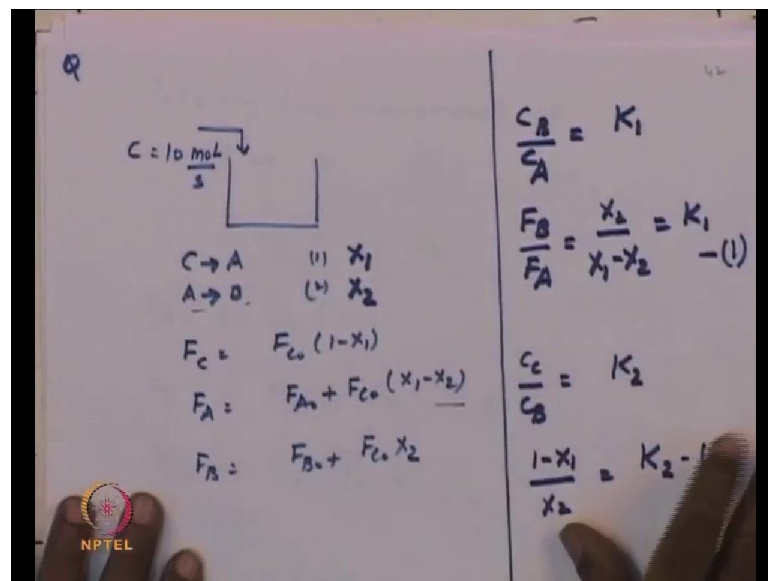 Q
42
C = 10 mol/s
C → A (1) X₁
A → B (2) X₂
F_C = F_C₀ (1-X₁)
F_A = F_A₀ + F_C₀ (X₁-X₂)
F_B = F_B₀ + F_C₀ X₂
C_B/C_A = K₁
F_B/F_A = X₂/(X₁-X₂) = K₁ -(1)
C_C/C_B = K₂
(1-X₁)/X₂ = K₂ -
NPTEL